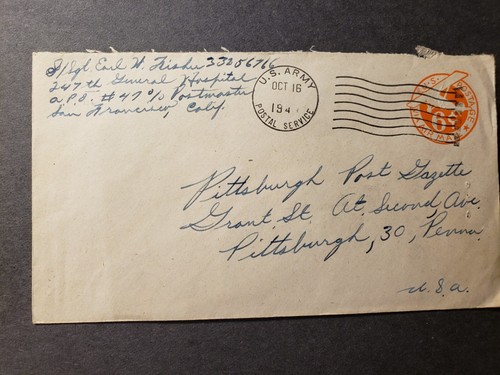 S/Sgt. Earl W. Fisher 33256766
247th General Hospital
A.P.O. #47 c/o Postmaster
San Francisco, Calif.
U.S. ARMY
OCT 16
194
POSTAL SERVICE
U.S. POSTAGE
6¢
VIA AIR MAIL
Pittsburgh Post Gazette
Grant St. At. Second Ave.
Pittsburgh, 30, Penna
U.S.A.